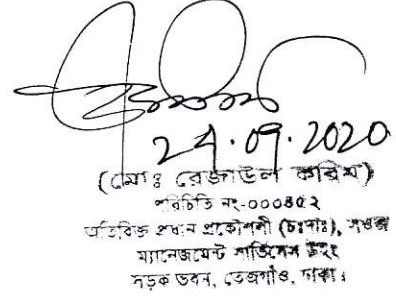 24.09.2020
(মোঃ রেজাউল করিম)
পরিচিতি নং-০০০৪৫২
অতিরিক্ত প্রধান প্রকৌশলী (চঃদাঃ), সওজ
ম্যানেজমেন্ট সার্ভিসেস উইং
সড়ক ভবন, তেজগাঁও, ঢাকা।